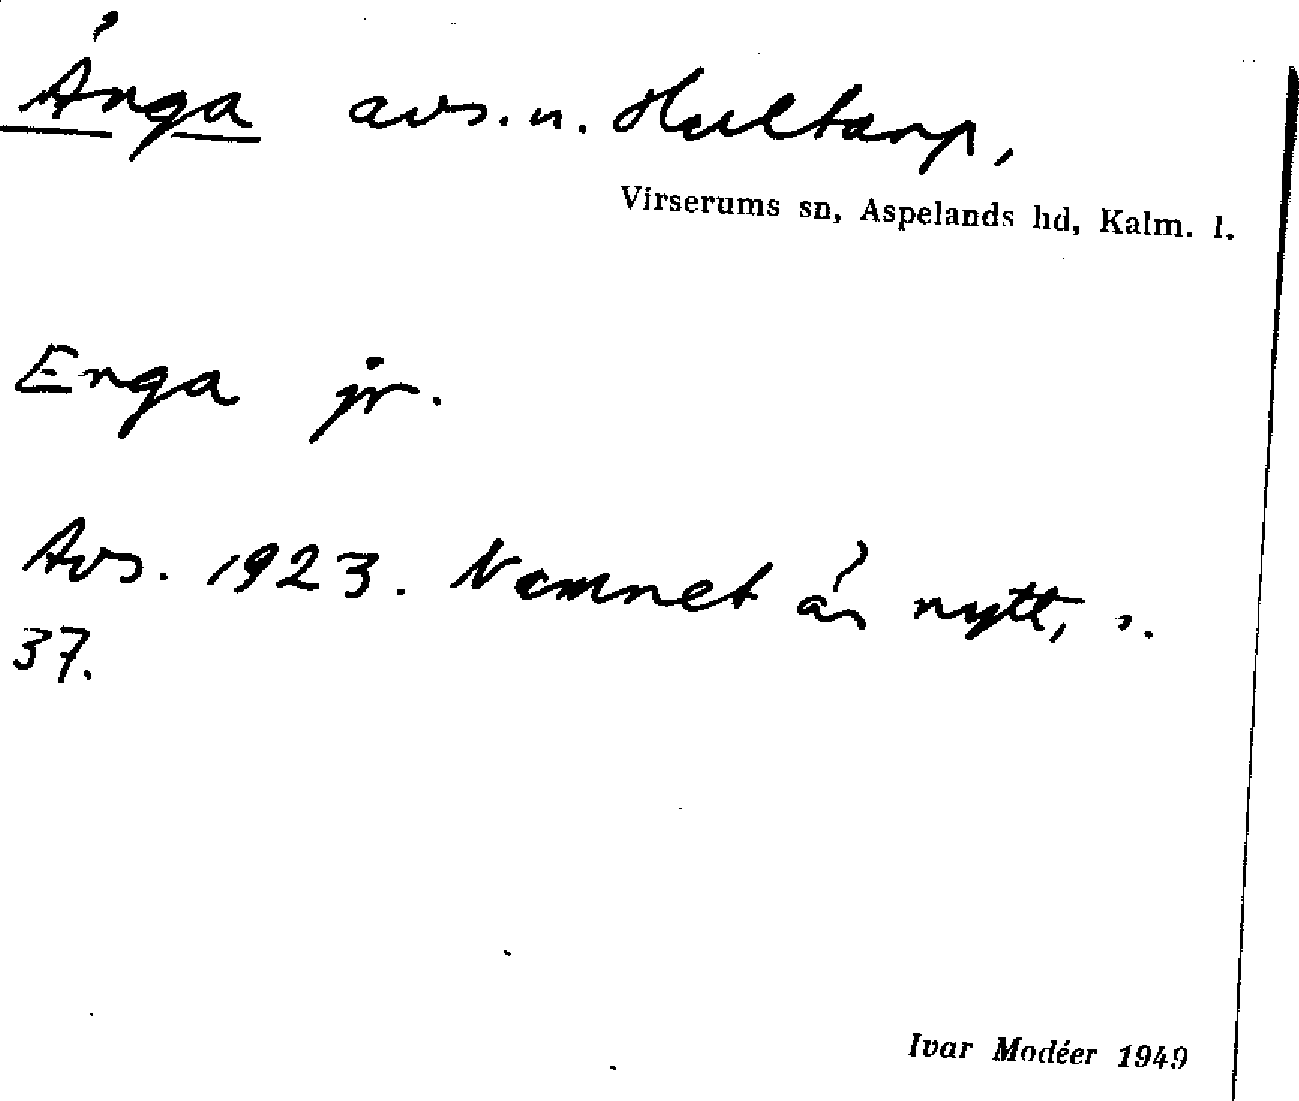 Änga avs. u. Hultarp,
Virserums sn, Aspelands hd, Kalm. l.
Enga jr.
Avs. 1923. Namnet är nytt, s.
37.
Ivar Modéer 1949